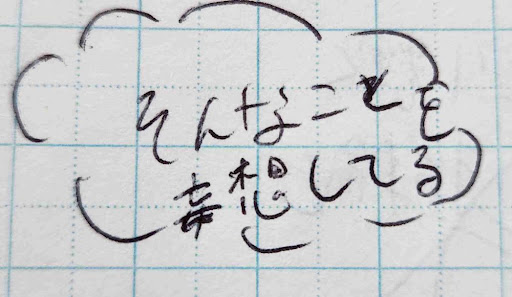 そんなことを
妄想してる